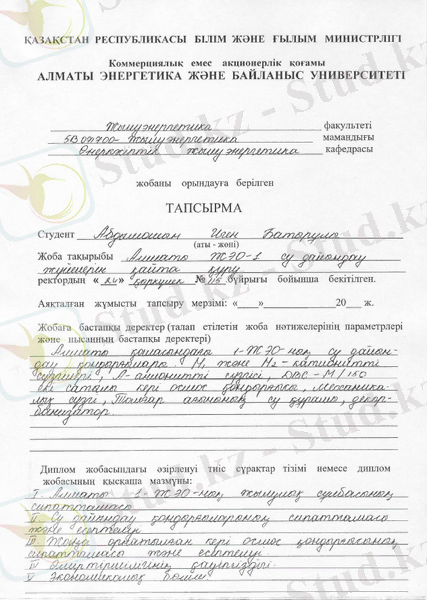 ҚАЗАҚСТАН РЕСПУБЛИКАСЫ БІЛІМ ЖӘНЕ ҒЫЛЫМ МИНИСТРЛІГІ
Коммерциялық емес акционерлік қоғамы
АЛМАТЫ ЭНЕРГЕТИКА ЖӘНЕ БАЙЛАНЫС УНИВЕРСИТЕТІ
Жылуэнергетика факультеті
5В071700 - Жылуэнергетика мамандығы
Өнеркәсіптік жылуэнергетика кафедрасы
жобаны орындауға берілген
ТАПСЫРМА
Студент
(аты - жөні)
Жоба тақырыбы Алматы ЖЭО-1 су дайындау
жүйелерін қайта құру
ректордың « » қыркүйек № 115 бұйрығы бойынша бекітілген.
Аяқталған жұмысты тапсыру мерзімі: «___» ________ 20___ ж.
Жобаға бастапқы деректер (талап етілетін жоба нәтижелерінің параметрлері
және нысанның бастапқы деректері)
Алматы қаласындағы 1-ЖЭО-ның су дайын-
дау қондырғылары Н₁ және Н₂ - катионитті
сүзгілері, А - анионитті сүзгісі, ДВС-М/150
екі сатылы кері осмос қондырғысы, механика-
лық сүзгі, Талғар ағынының су құрамы, декар-
бонизатор.
Диплом жобасындағы әзірленуі тиіс сұрақтар тізімі немесе диплом
жобасының қысқаша мазмұны:
I Алматы 1-ЖЭО-ның жылулық сұлбасының
сипаттамасы
II Су дайындау қондырғыларының сипаттамасы
және есептелуі
III Жаңа орнатылған кері осмос қондырғысының
сипаттамасы және есептелуі.
IV Өміртіршілігінің қауіпсіздігі.
V Экономикалық бөлім
Stud.kz